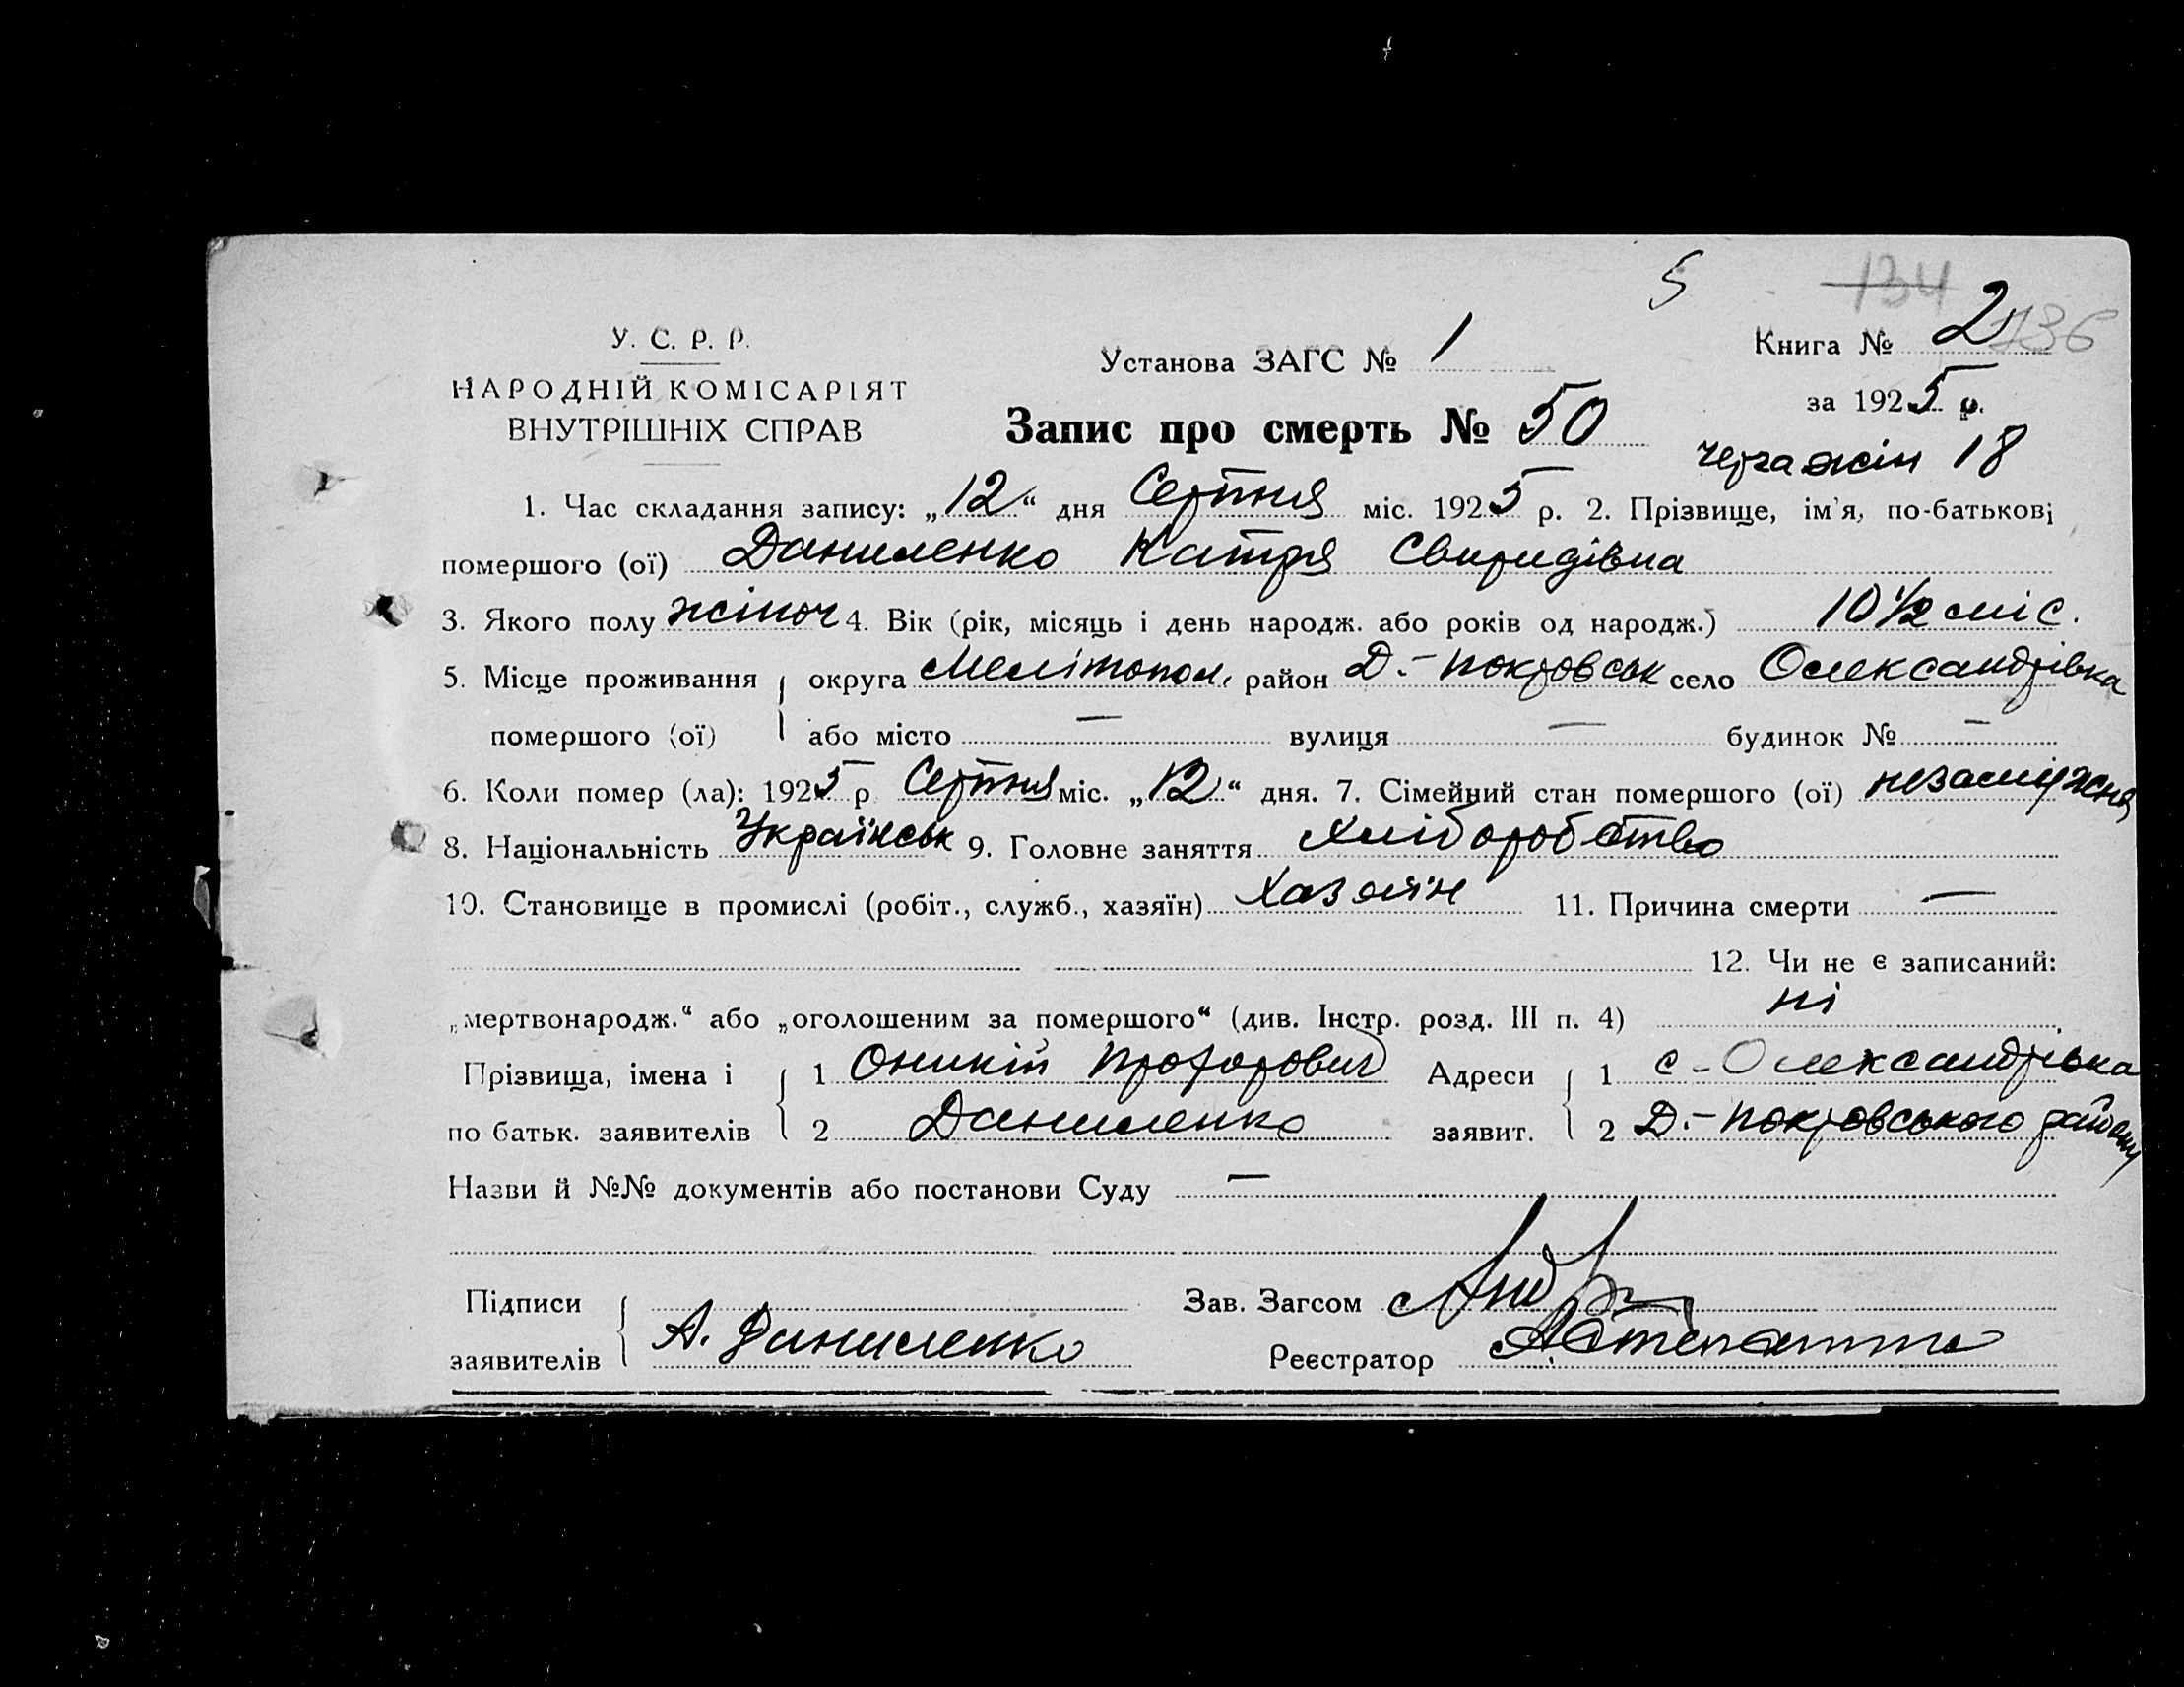 5 134
У. С. Р. Р. Установа ЗАГС № 1 Книга № 2 136
НАРОДНІЙ КОМІСАРІЯТ за 1925 р.
ВНУТРІШНІХ СПРАВ Запис про смерть № 50
черга жін 18
1. Час складання запису: „12“ дня Серпня міс. 1925 р. 2. Прізвище, ім'я, по-батькові
помершого (ої) Даниленко Катря Свиридівна
3. Якого полу жіноч 4. Вік (рік, місяць і день народж. або років од народж.) 10 ½ міс.
5. Місце проживання округа Мелітопол. район Д.-Покровськ село Олександрівка
помершого (ої) або місто — вулиця — будинок № —
6. Коли помер (ла): 1925 р Серпня міс. „12“ дня. 7. Сімейний стан помершого (ої) незаміжня
8. Національність Українськ 9. Головне заняття Хліборобство
10. Становище в промислі (робіт., служб., хазяїн) Хазяїн 11. Причина смерти —
12. Чи не є записаний:
„мертвонародж.“ або „оголошеним за помершого“ (див. Інстр. розд. III п. 4) ні
Прізвища, імена і 1 Оникій Прохорович Адреси 1 с-Олександрівка
по батьк. заявителів 2 Даниленко заявит. 2 Д.-Покровського району
Назви й №№ документів або постанови Суду —
Підписи Зав. Загсом
заявителів А. Даниленко Реєстратор